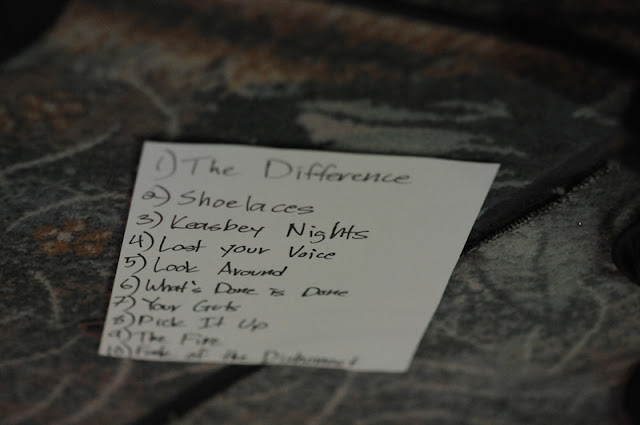 1) The Difference
2) Shoelaces
3) Keasbey Nights
4) Lost your Voice
5) Look Around
6) What's Done is Done
7) Your Guts
8) Pick It Up
9) The Fire
10) of the